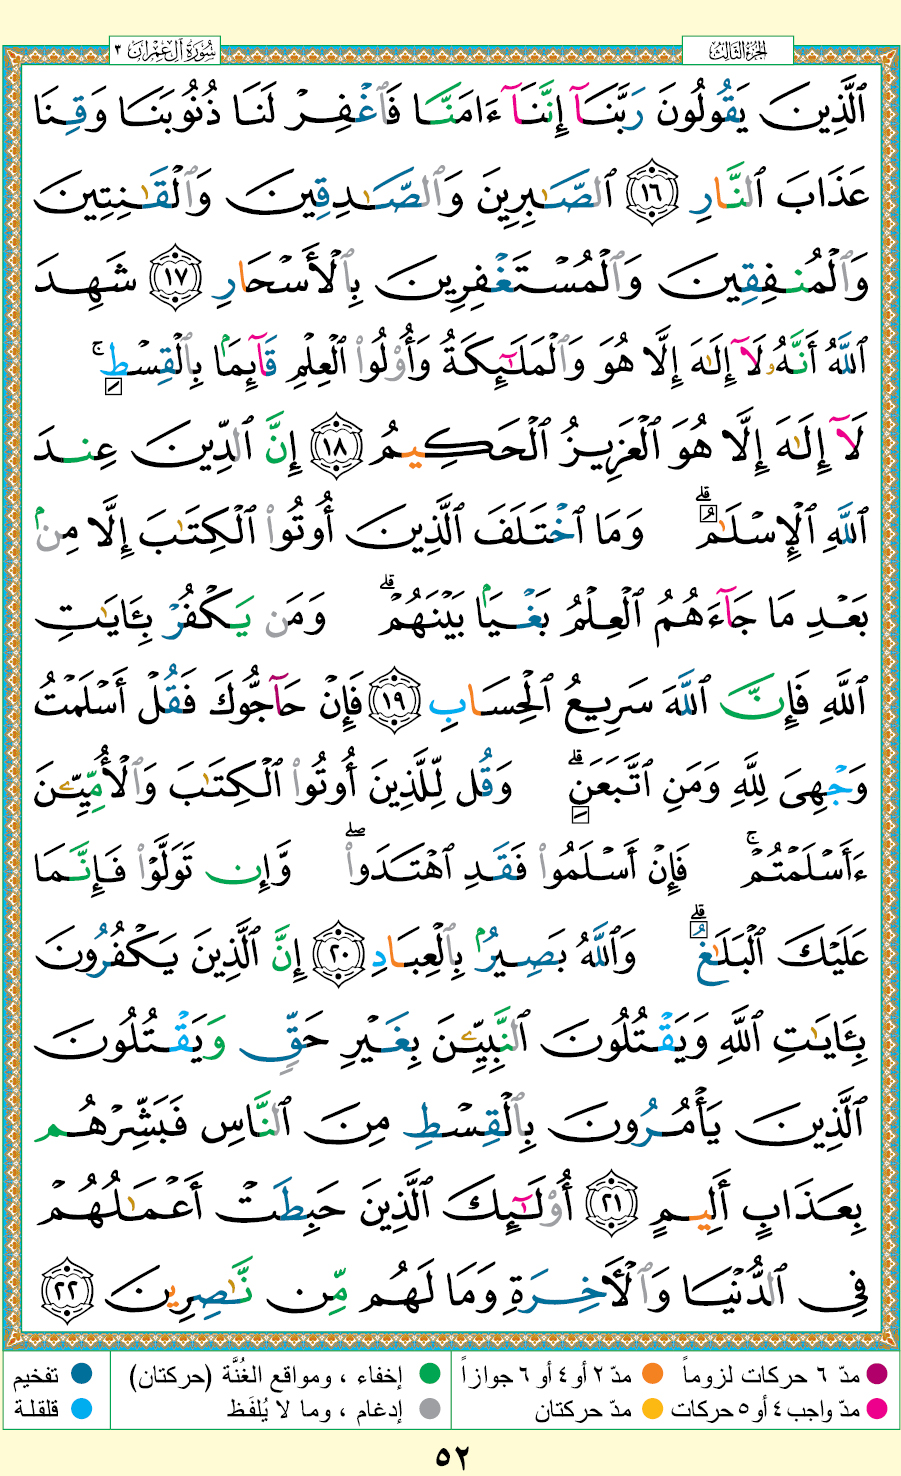 سُورَةُ آلِ عِمْرَان ٣
الجزء الثالث
ٱلَّذِينَ يَقُولُونَ رَبَّنَآ إِنَّنَآ ءَامَنَّا فَٱغْفِرْ لَنَا ذُنُوبَنَا وَقِنَا
عَذَابَ ٱلنَّارِ ١٦ ٱلصَّٰبِرِينَ وَٱلصَّٰدِقِينَ وَٱلْقَٰنِتِينَ
وَٱلْمُنفِقِينَ وَٱلْمُسْتَغْفِرِينَ بِٱلْأَسْحَارِ ١٧ شَهِدَ
ٱللَّهُ أَنَّهُۥ لَآ إِلَٰهَ إِلَّا هُوَ وَٱلْمَلَٰٓئِكَةُ وَأُو۟لُوا۟ ٱلْعِلْمِ قَآئِمًۢا بِٱلْقِسْطِ ۚ
لَآ إِلَٰهَ إِلَّا هُوَ ٱلْعَزِيزُ ٱلْحَكِيمُ ١٨ إِنَّ ٱلدِّينَ عِندَ
ٱللَّهِ ٱلْإِسْلَٰمُ ۗ وَمَا ٱخْتَلَفَ ٱلَّذِينَ أُوتُوا۟ ٱلْكِتَٰبَ إِلَّا مِنۢ
بَعْدِ مَا جَآءَهُمُ ٱلْعِلْمُ بَغْيًۢا بَيْنَهُمْ ۗ وَمَن يَكْفُرْ بِـَٔايَٰتِ
ٱللَّهِ فَإِنَّ ٱللَّهَ سَرِيعُ ٱلْحِسَابِ ١٩ فَإِنْ حَآجُّوكَ فَقُلْ أَسْلَمْتُ
وَجْهِىَ لِلَّهِ وَمَنِ ٱتَّبَعَنِ ۗ وَقُل لِّلَّذِينَ أُوتُوا۟ ٱلْكِتَٰبَ وَٱلْأُمِّيِّـۧنَ
ءَأَسْلَمْتُمْ ۚ فَإِنْ أَسْلَمُوا۟ فَقَدِ ٱهْتَدَوا۟ ۖ وَّإِن تَوَلَّوْا۟ فَإِنَّمَا
عَلَيْكَ ٱلْبَلَٰغُ ۗ وَٱللَّهُ بَصِيرٌۢ بِٱلْعِبَادِ ٢٠ إِنَّ ٱلَّذِينَ يَكْفُرُونَ
بِـَٔايَٰتِ ٱللَّهِ وَيَقْتُلُونَ ٱلنَّبِيِّـۧنَ بِغَيْرِ حَقٍّ وَيَقْتُلُونَ
ٱلَّذِينَ يَأْمُرُونَ بِٱلْقِسْطِ مِنَ ٱلنَّاسِ فَبَشِّرْهُم
بِعَذَابٍ أَلِيمٍ ٢١ أُو۟لَٰٓئِكَ ٱلَّذِينَ حَبِطَتْ أَعْمَٰلُهُمْ
فِى ٱلدُّنْيَا وَٱلْـَٔاخِرَةِ وَمَا لَهُم مِّن نَّٰصِرِينَ ٢٢
مدّ ٦ حركات لزوماً مدّ ٢ أو ٤ أو ٦ جوازاً إخفاء ، ومواقع الغُنَّة (حركتان) تفخيم
مدّ واجب ٤ أو ٥ حركات مدّ حركتان إدغام ، وما لا يُلفَظ قلقلة
٥٢